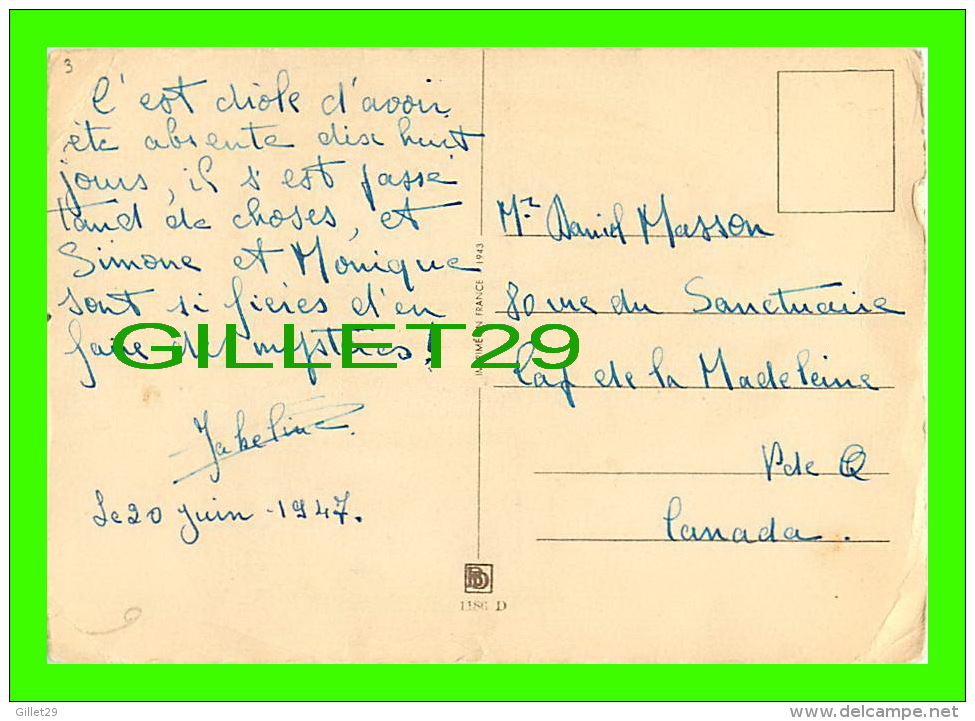 3
C'est drôle d'avoir
été absente dix huit
jours, il s'est passé
tand de choses, et
Simone et Monique
sont si fières d'en
faire des mystères !
Jakeline
Le 20 juin - 1947.
IMPRIMÉ EN FRANCE 1943
Mr Daniel Masson
80 rue du Sanctuaire
Cap de la Madeleine
P de Q
Canada.
1186 D
GILLET29
Gillet29
www.delcampe.net